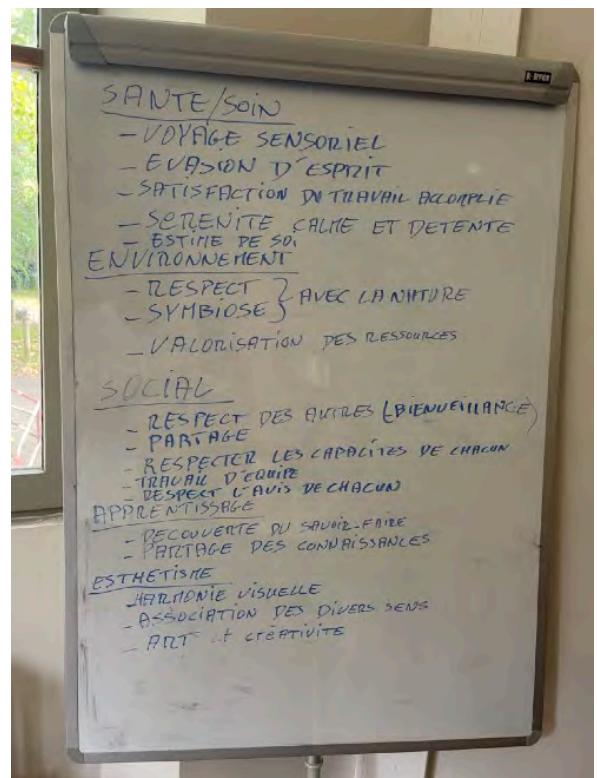 SANTE/SOIN
- VOYAGE SENSORIEL
- EVASION D'ESPRIT
- SATISFACTION DU TRAVAIL ACCOMPLIE
- SERENITE CALME ET DETENTE
- ESTIME DE SOI
ENVIRONNEMENT
- RESPECT
- SYMBIOSE } AVEC LA NATURE
- VALORISATION DES RESSOURCES
SOCIAL
- RESPECT DES AUTRES (BIENVEILLANCE)
- PARTAGE
- RESPECTER LES CAPACITES DE CHACUN
- TRAVAIL D'EQUIPE
- RESPECT L'AVIS DE CHACUN
APPRENTISSAGE
- DECOUVERTE DU SAVOIR-FAIRE
- PARTAGE DES CONNAISSANCES
ESTHETISME
- HARMONIE VISUELLE
- ASSOCIATION DES DIVERS SENS
- ART et CREATIVITE